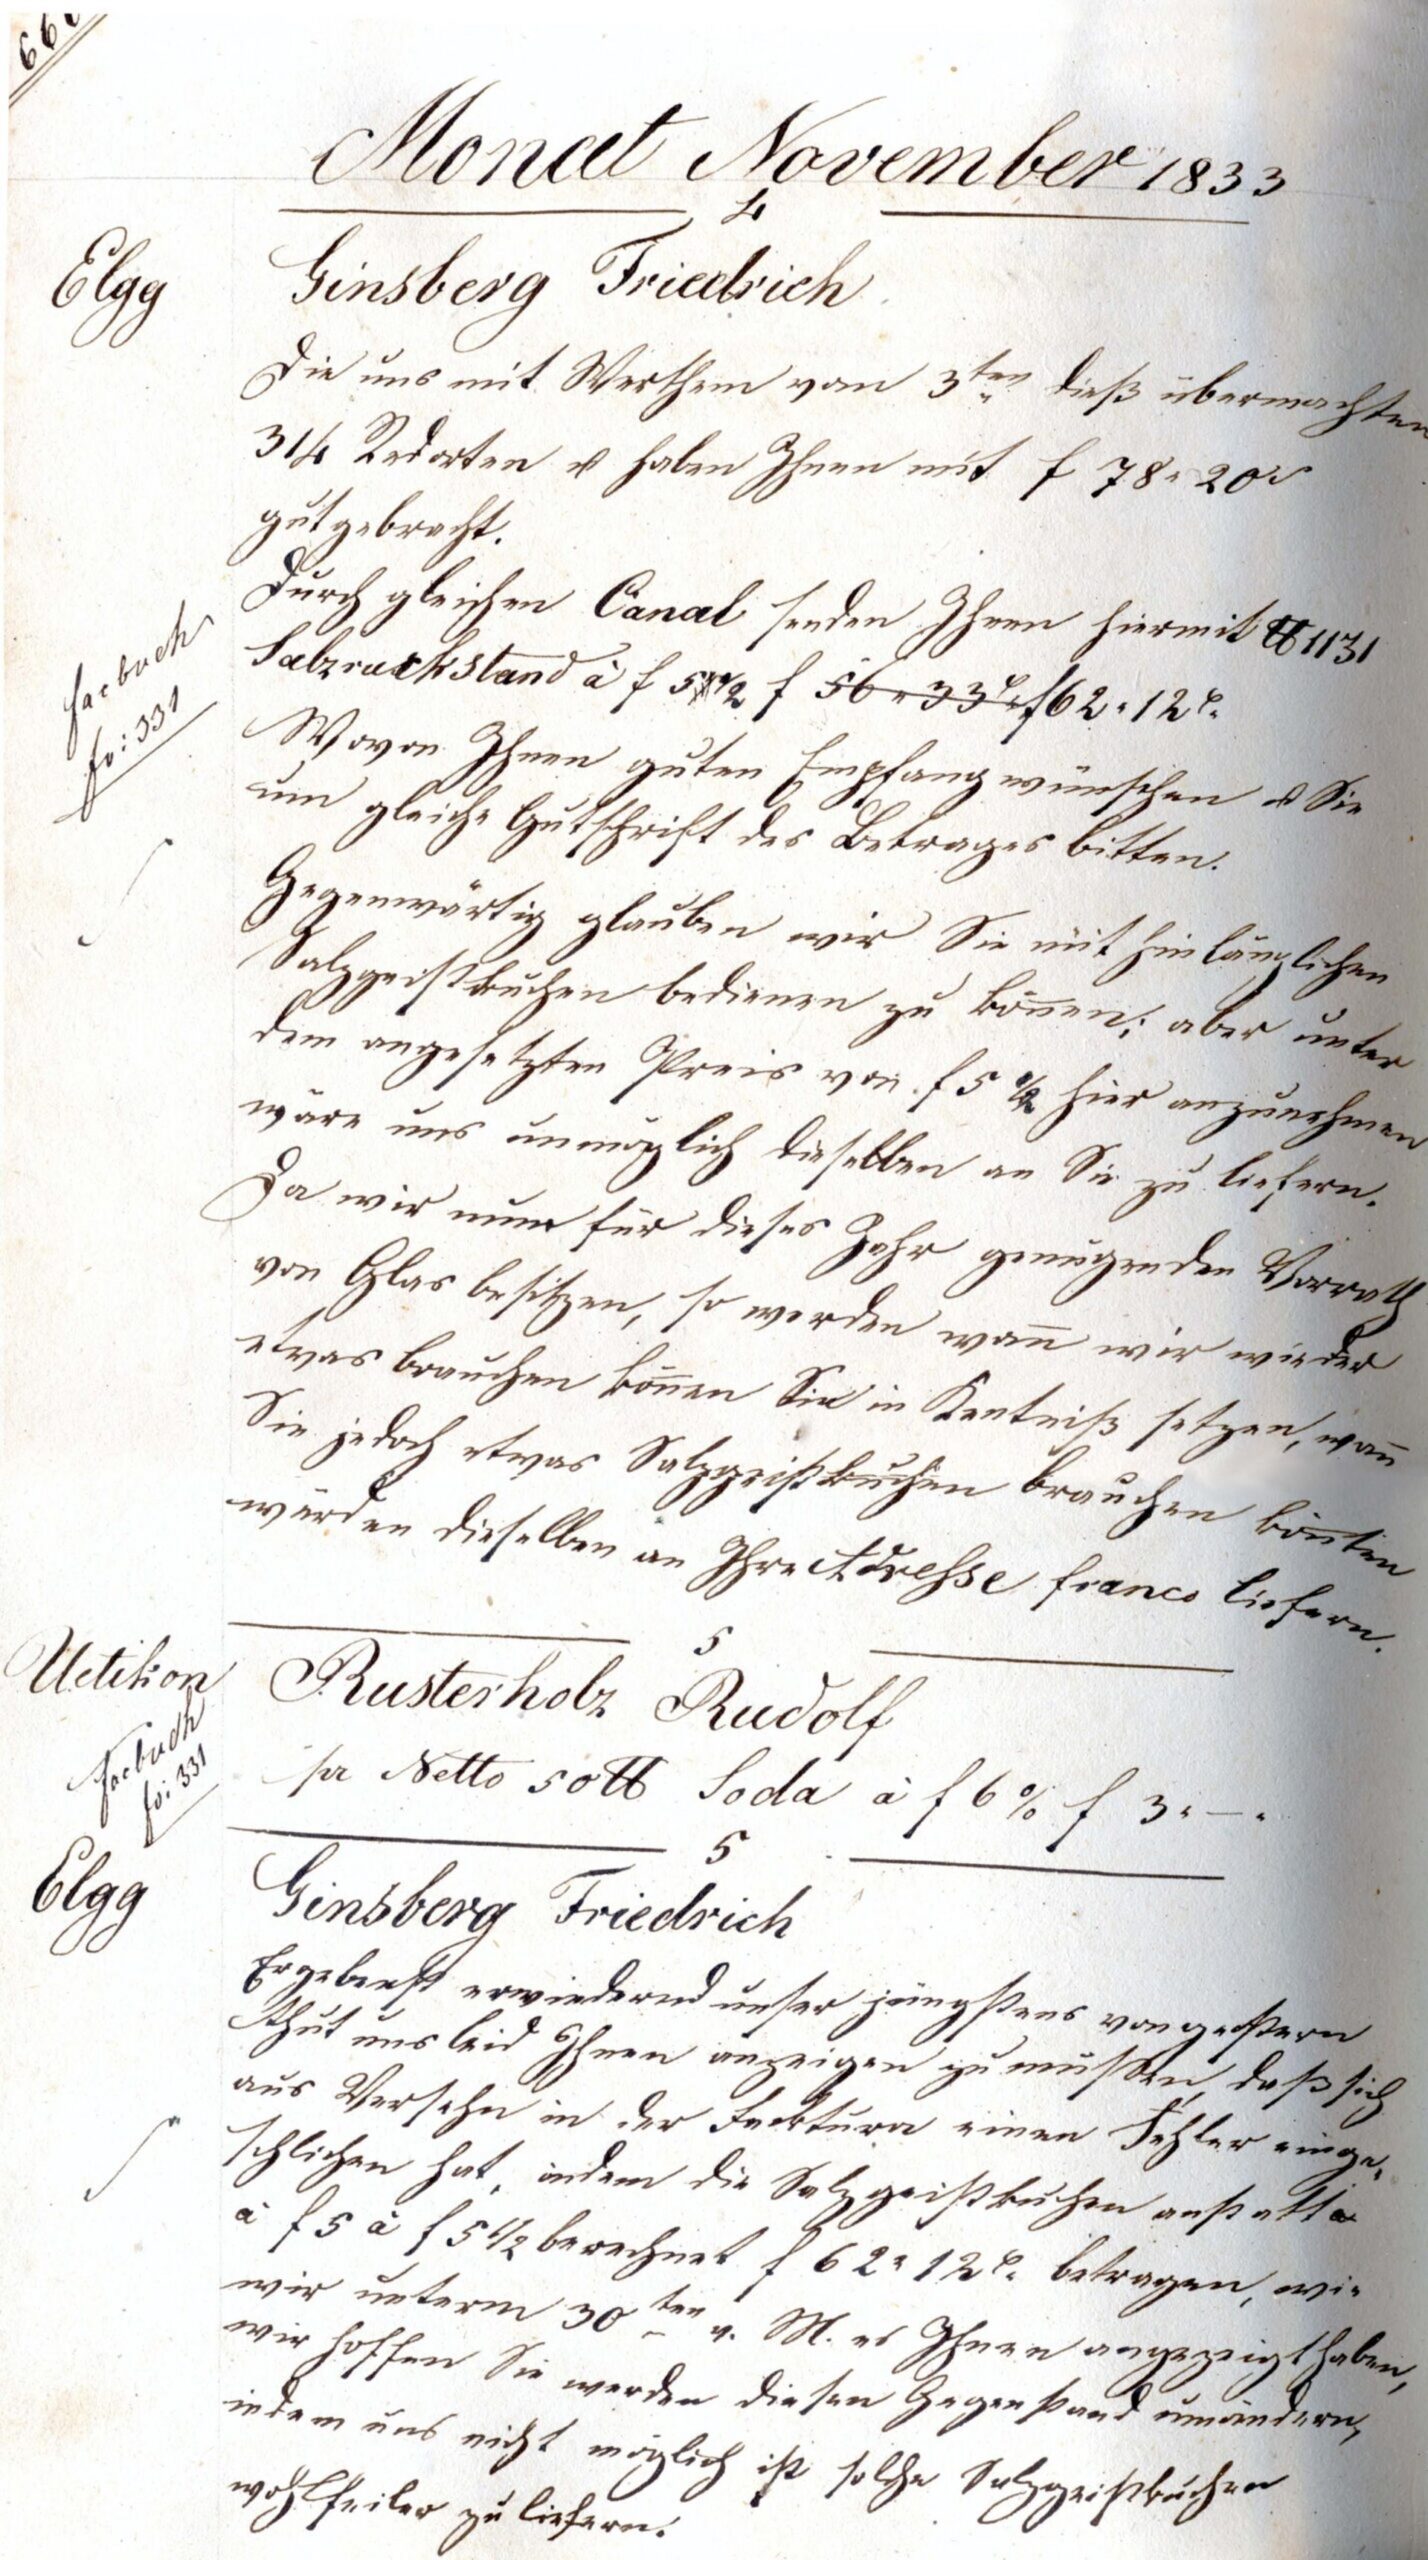 66
Monat November 1833
4
Elgg
Ginsberg Friedrich
Die uns mit Werthem vom 3ten dieß übermachten
314 Redorten u haben Ihnen mit f 78 " 20 x
gutgebracht.
Durch gleichen Canal senden Ihnen hiermit ℔ 1131
Salzruckstand à f 5 1/2 f 56 " 33 x f 62 " 12 x.
facbuch
fo: 331
Wovon Ihnen guten Empfang wünschen u Sie
um gleiche Gutschrift des Betrages bitten.
Gegenwärtig glauben wir Sie mit hinlänglichen
Salzgeistkuchen bedienen zu können; aber unter
dem angesetzten Preis von f 5 1/2 hier anzunehmen
wäre uns unmöglich dieselben an Sie zu liefern.
Da wir nun für dieses Jahr genugenden Vorrath
von Glas besitzen, so werden wan̄ wir wieder
etwas brauchen kön̄en Sie in Kentniß setzen, wan̄
Sie jedoch etwas Salzgeistkuchen brauchen kön̄ten
würden dieselben an Ihre Adresse franco liefern.
5
Uetikon
Rusterholz Rudolf
facbuch
fo: 331
pr Netto 50 ℔ Soda à f 6 % f 3 " — "
5
Elgg
Ginsberg Friedrich
Ergebenst erwiedernd unser jüngstens von gestern
thut uns leid Ihnen anzeigen zu mussen, daß sich
aus Versehn in der Facktura einen Fehler einge„
schlichen hat, indem die Salzgeistkuchen anstatt
à f 5 à f 5 1/2 berechnet f 62 " 12 x. betragen, wie
wir unterm 30ten v. M. es Ihnen angezeigt haben,
wir hoffen Sie werden diesen Gegenstand umändern,
indem uns nicht möglich ist solche Salzgeistkuchen
wohlfeiler zu liefern.